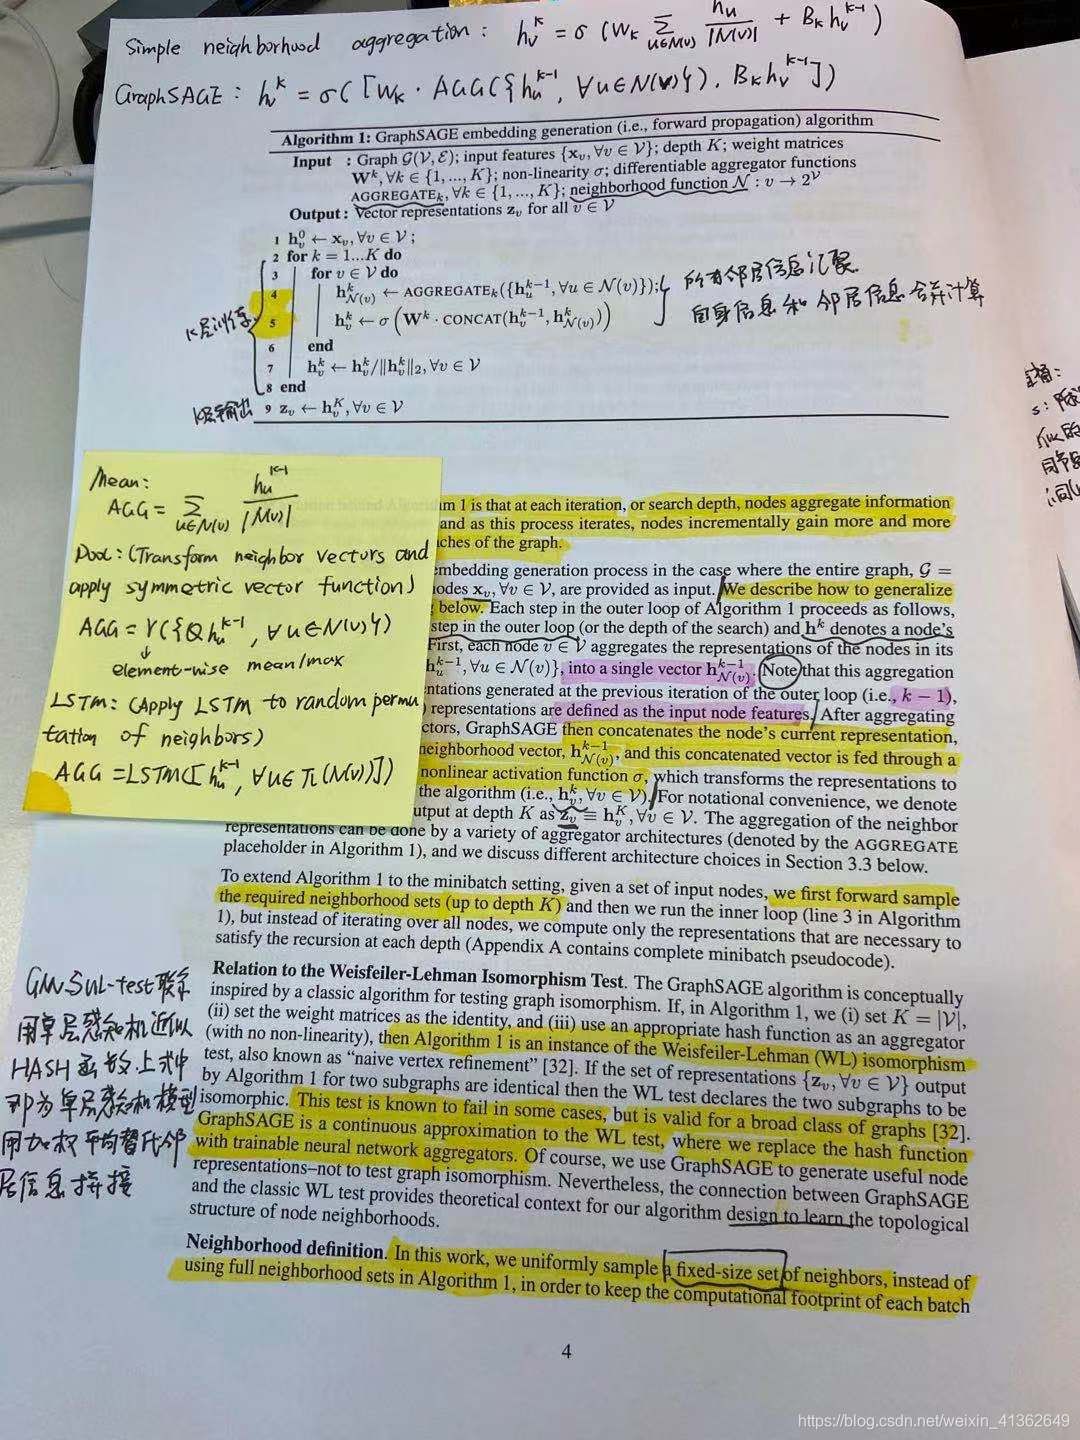 Simple neighborhood aggregation: h_v^k = σ (W_k Σ_{u∈N(v)} h_u^{k-1}/|N(v)| + B_k h_v^{k-1})
GraphSAGE: h_v^k = σ([W_k · AGG({h_u^{k-1}, ∀u∈N(v)}), B_k h_v^{k-1}])
Algorithm 1: GraphSAGE embedding generation (i.e., forward propagation) algorithm
Input : Graph G(V, E); input features {x_v, ∀v ∈ V}; depth K; weight matrices
W^k, ∀k ∈ {1, ..., K}; non-linearity σ; differentiable aggregator functions
AGGREGATE_k, ∀k ∈ {1, ..., K}; neighborhood function N : v → 2^V
Output : Vector representations z_v for all v ∈ V
1 h_v^0 ← x_v, ∀v ∈ V ;
2 for k = 1...K do
3 for v ∈ V do
4 h_{N(v)}^k ← AGGREGATE_k({h_u^{k-1}, ∀u ∈ N(v)});
所有邻居信息汇聚
5 h_v^k ← σ (W^k · CONCAT(h_v^{k-1}, h_{N(v)}^k))
自身信息和邻居信息合并计算
K层训练
6 end
7 h_v^k ← h_v^k/‖h_v^k‖_2, ∀v ∈ V
8 end
K层输出 9 z_v ← h_v^K, ∀v ∈ V
Mean:
AGG = Σ_{u∈N(v)} h_u^{k-1}/|N(v)|
Pool: (Transform neighbor vectors and
apply symmetric vector function)
AGG = γ({Qh_u^{k-1}, ∀u∈N(v)})
↓
element-wise mean/max
LSTM: (Apply LSTM to random permu
tation of neighbors)
AGG = LSTM([h_u^{k-1}, ∀u∈π(N(v))])
m 1 is that at each iteration, or search depth, nodes aggregate information
and as this process iterates, nodes incrementally gain more and more
aches of the graph.
embedding generation process in the case where the entire graph, G =
odes x_v, ∀v ∈ V, are provided as input. We describe how to generalize
below. Each step in the outer loop of Algorithm 1 proceeds as follows,
step in the outer loop (or the depth of the search) and h^k denotes a node's
First, each node v ∈ V aggregates the representations of the nodes in its
h_u^{k-1}, ∀u ∈ N(v)}, into a single vector h_{N(v)}^{k-1}. Note that this aggregation
ntations generated at the previous iteration of the outer loop (i.e., k − 1),
representations are defined as the input node features. After aggregating
ctors, GraphSAGE then concatenates the node's current representation,
neighborhood vector, h_{N(v)}^{k-1}, and this concatenated vector is fed through a
nonlinear activation function σ, which transforms the representations to
the algorithm (i.e., h_v^k, ∀v ∈ V). For notational convenience, we denote
utput at depth K as z_v ≡ h_v^K, ∀v ∈ V. The aggregation of the neighbor
representations can be done by a variety of aggregator architectures (denoted by the AGGREGATE
placeholder in Algorithm 1), and we discuss different architecture choices in Section 3.3 below.
To extend Algorithm 1 to the minibatch setting, given a set of input nodes, we first forward sample
the required neighborhood sets (up to depth K) and then we run the inner loop (line 3 in Algorithm
1), but instead of iterating over all nodes, we compute only the representations that are necessary to
satisfy the recursion at each depth (Appendix A contains complete minibatch pseudocode).
用单层感知机近似
HASH函数,上式中
即为单层感知机模型
用加权平均替代邻
居信息拼接
Relation to the Weisfeiler-Lehman Isomorphism Test. The GraphSAGE algorithm is conceptually
inspired by a classic algorithm for testing graph isomorphism. If, in Algorithm 1, we (i) set K = |V|,
(ii) set the weight matrices as the identity, and (iii) use an appropriate hash function as an aggregator
(with no non-linearity), then Algorithm 1 is an instance of the Weisfeiler-Lehman (WL) isomorphism
test, also known as “naive vertex refinement” [32]. If the set of representations {z_v, ∀v ∈ V} output
by Algorithm 1 for two subgraphs are identical then the WL test declares the two subgraphs to be
isomorphic. This test is known to fail in some cases, but is valid for a broad class of graphs [32].
GraphSAGE is a continuous approximation to the WL test, where we replace the hash function
with trainable neural network aggregators. Of course, we use GraphSAGE to generate useful node
representations–not to test graph isomorphism. Nevertheless, the connection between GraphSAGE
and the classic WL test provides theoretical context for our algorithm design to learn the topological
structure of node neighborhoods.
Neighborhood definition. In this work, we uniformly sample a fixed-size set of neighbors, instead of
using full neighborhood sets in Algorithm 1, in order to keep the computational footprint of each batch
4
https://blog.csdn.net/weixin_41362649